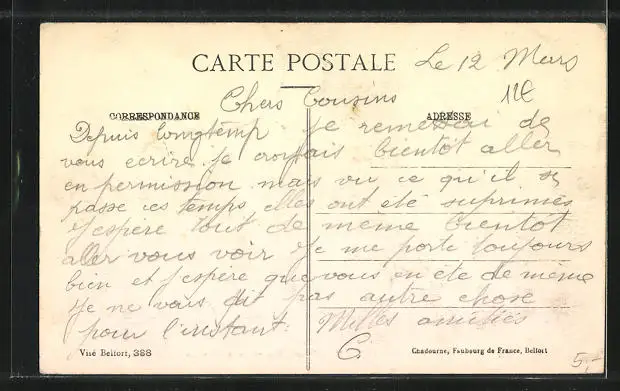 CARTE POSTALE Le 12 Mars
12€
Chers Cousins
CORRESPONDANCE ADRESSE
Depuis longtemp je remettai de
vous ecrire je croyais bientot aller
en permission mais vu ce qu'il se
passe ces temps elles ont été suprimés
J'espère tout de même bientot
aller vous voir Je me porte toujours
bien et j'espère que vous en ete de même
Je ne vous dit pas autre chose
pour l'instant. Milles amitiés
C.
Visé Belfort, 388 Chadourne, Faubourg de France, Belfort
5,-